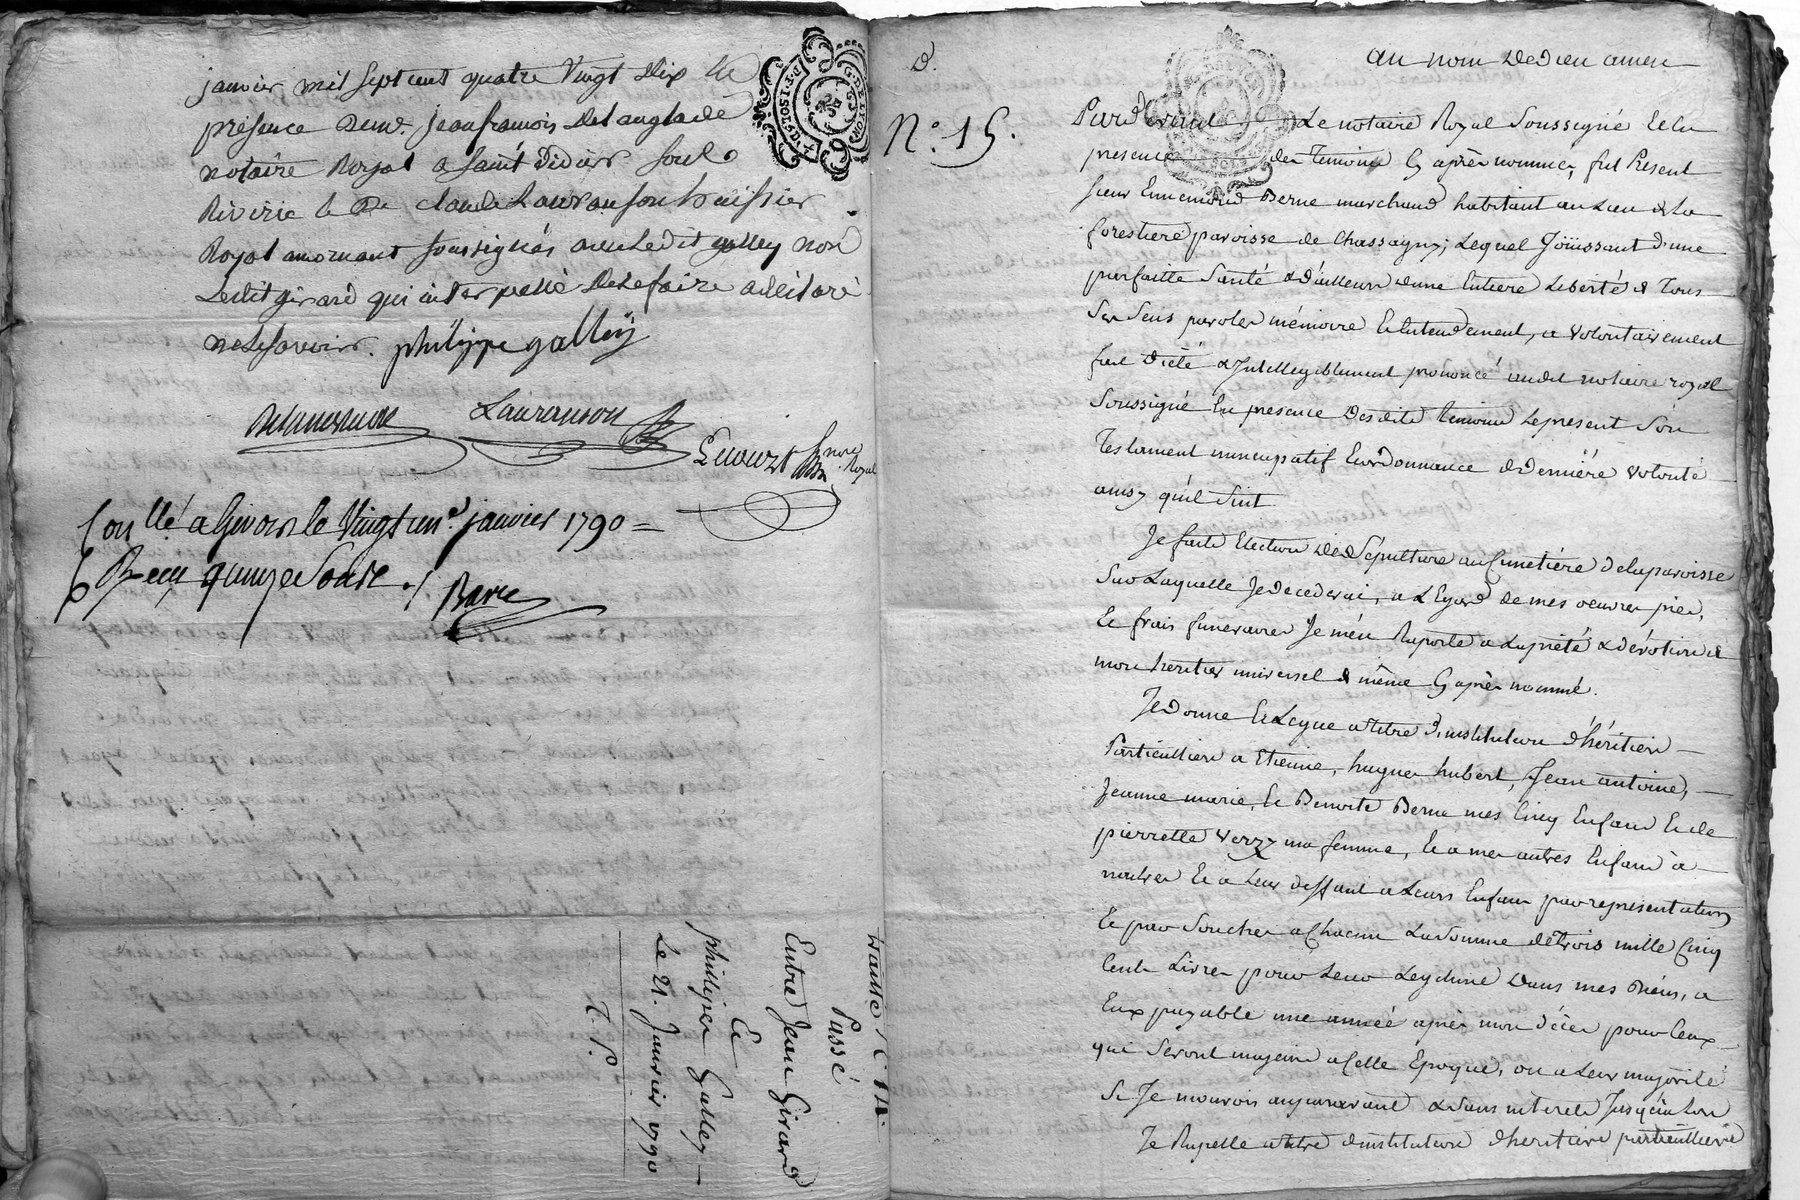 janvier mil sept cent quatre vingt dix En
présence de me. jean françois Delanglade
notaire Royal a Saint Didier sous
Riverie & de Sr. claude Lauranson huissier
Royal a mornant soussignés avec ledit galley non
Ledit girard qui interpellé de le faire a déclaré
ne le savoir. philippe galley
Delanglade
Lauranson
nore Royal
Con llé a Givors le Vingt un e. janvier 1790 =
Reçu quinze Sous ./.
Barre
Passé
Entre Jean Girard
Et
philippe Galley —
Le 21. Janvier 1790
T. P.
D.
N.° 15.
au nom de Dieu amen
Par devant Le notaire Royal Soussigné Et En
presence des Temoins Cy après nommes, fut Present
Sieur Ennemond Berne marchand habitant au Lieu de La
forestiere paroisse de Chassagny; Lequel Joüissant d'une
parfaitte Santé & d'ailleurs d'une Entiere Liberté de Tous
Ses Sens paroles mémoire Et Entendement, a volontairement
fait Dicté & Intelligiblement prononcé audit notaire royal
Soussigné En presence Desdits Temoins Le present Son
Testament nuncupatif Et ordonnance de derniére volonté
ainsy qu'il Suit
Je fait Election de Sépulture au Cimetiére de la paroisse
Sur Laquelle Je decederai, a L'Egard de mes oeuvres pies,
Et frais funeraires Je m'en Raporte a La piété & dévotion de
mon heritier universel de même Cy après nommé.
Je Donne Et Legue a titre d'institution d'héritiers —
Particulliers a Etienne, hugues hubert, Jean antoine, —
Jeanne marie, Et Benoite Berne mes Cinq Enfans Et de
pierrette Verzy ma femme, Et a mes autres Enfans à —
naitre Et a Leur deffaut a Leurs Enfans par representation
Et par Souches a Chacun La Somme de trois mille Cinq
Cents Livres pour Leur Legitime Dans mes Biens, a
Eux payable une année après mon décès pour Ceux —
qui Seront majeurs a Cette Epoque, ou a Leur majorité
Si Je mourois auparavant & Sans interets Jusqu'alors
Je Rapelle a titre d'institution d'heritiere particulliere